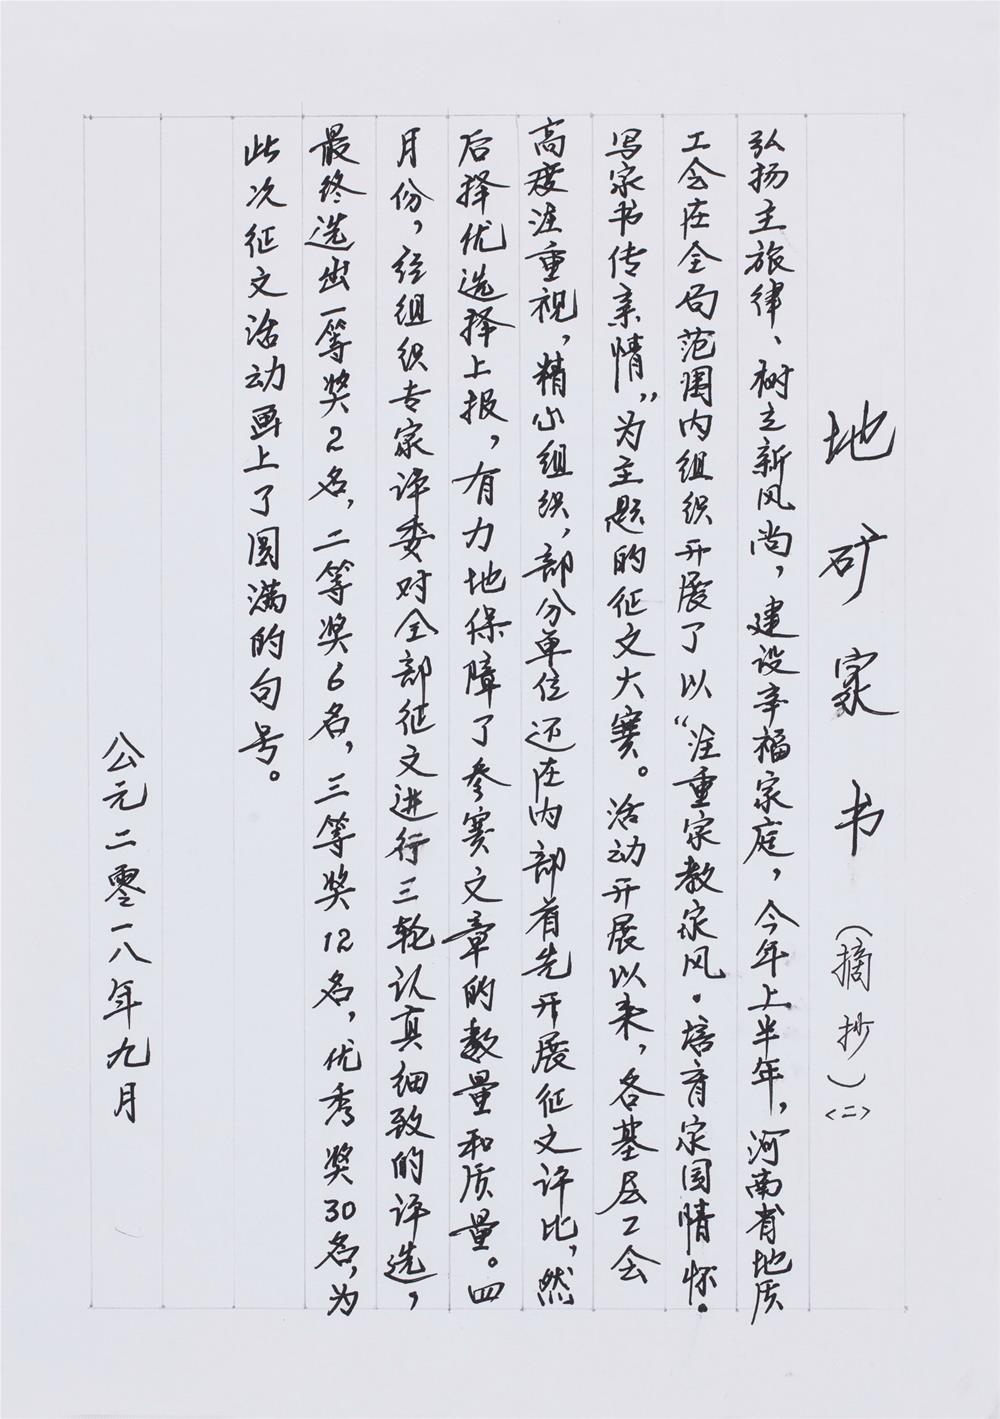 地矿家书（摘抄）<二>
弘扬主旋律、树立新风尚，建设幸福家庭，今年上半年，河南省地质
工会在全局范围内组织开展了以“注重家教家风·培育家国情怀·
写家书传亲情”为主题的征文大赛。活动开展以来，各基层工会
高度注重视，精心组织，部分单位还在内部首先开展征文评比，然
后择优选择上报，有力地保障了参赛文章的数量和质量。四
月份，经组织专家评委对全部征文进行三轮认真细致的评选，
最终选出一等奖2名，二等奖6名，三等奖12名，优秀奖30名，为
此次征文活动画上了圆满的句号。
公元二零一八年九月